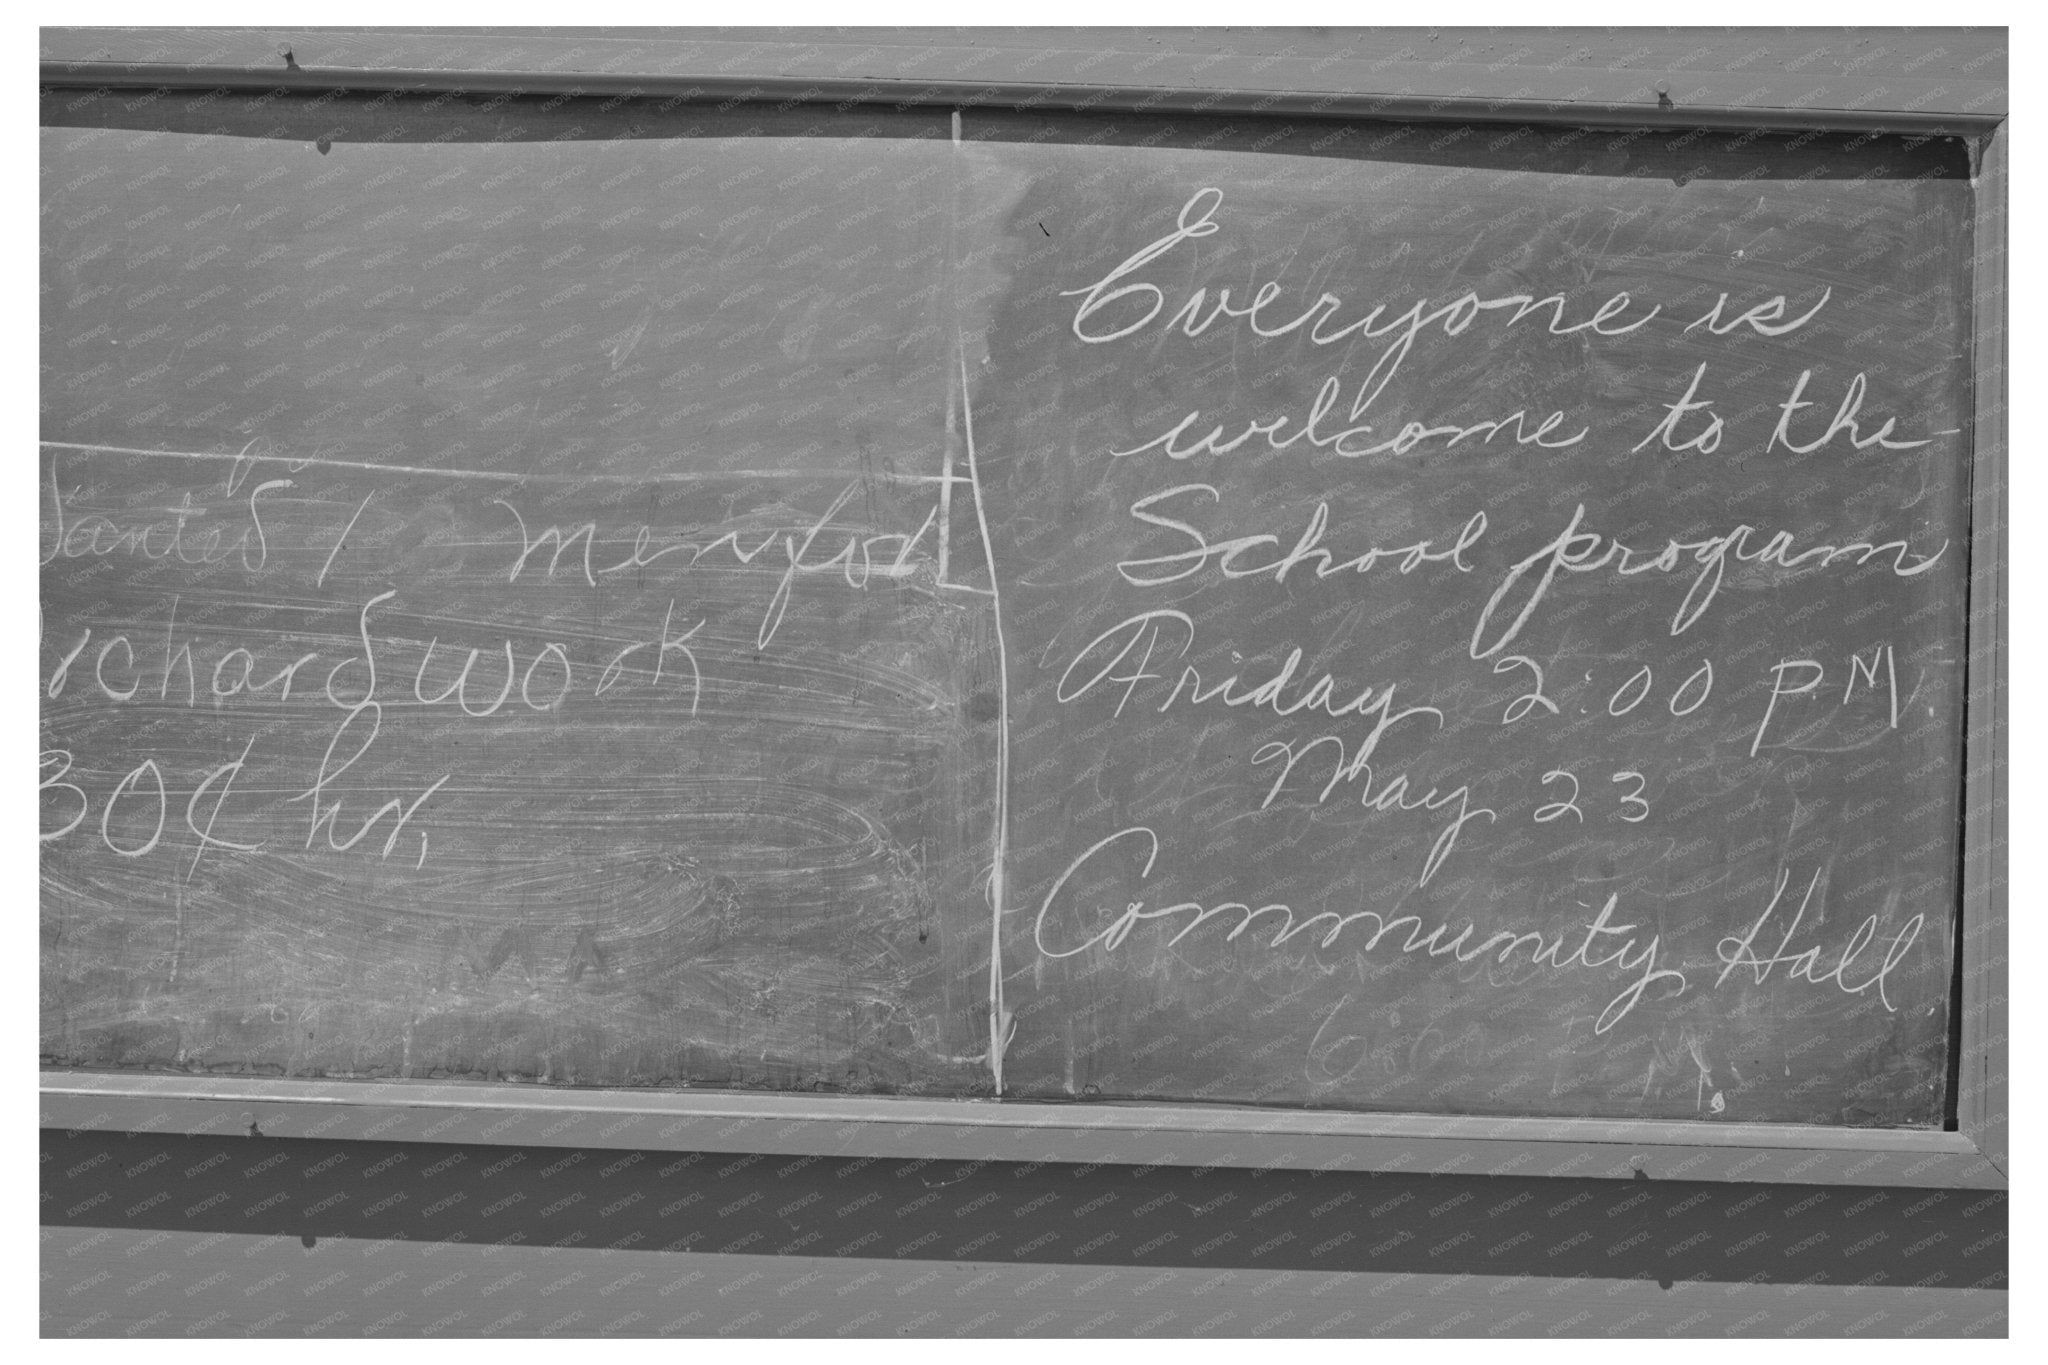 Wanted / men for
Orchard work
30¢ hr.
Everyone is
welcome to the
School program
Friday 2:00 P.M.
May 23
Community Hall